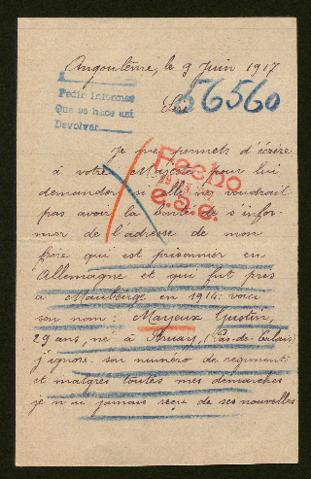 Angoulême, le 9 Juin 1917
Sire
56560
Pedir informes
Que se hace asi
Devolver
Je me permets d'écrire
à votre Majesté pour lui
demander si elle ne voudrait
Fecho
pas avoir la bonté de s'infor-
mer de l'adresse de mon
frère qui est prisonnier en
Allemagne et qui fut pris
à Maubeuge en 1914: voici
son nom: Marjeux Gustin,
29 ans, né à Bruay, (Pas-de-Calais)
j'ignore son numéro de régiment
et malgrés toutes mes démarches
je n'ai jamais reçu de ses nouvelles